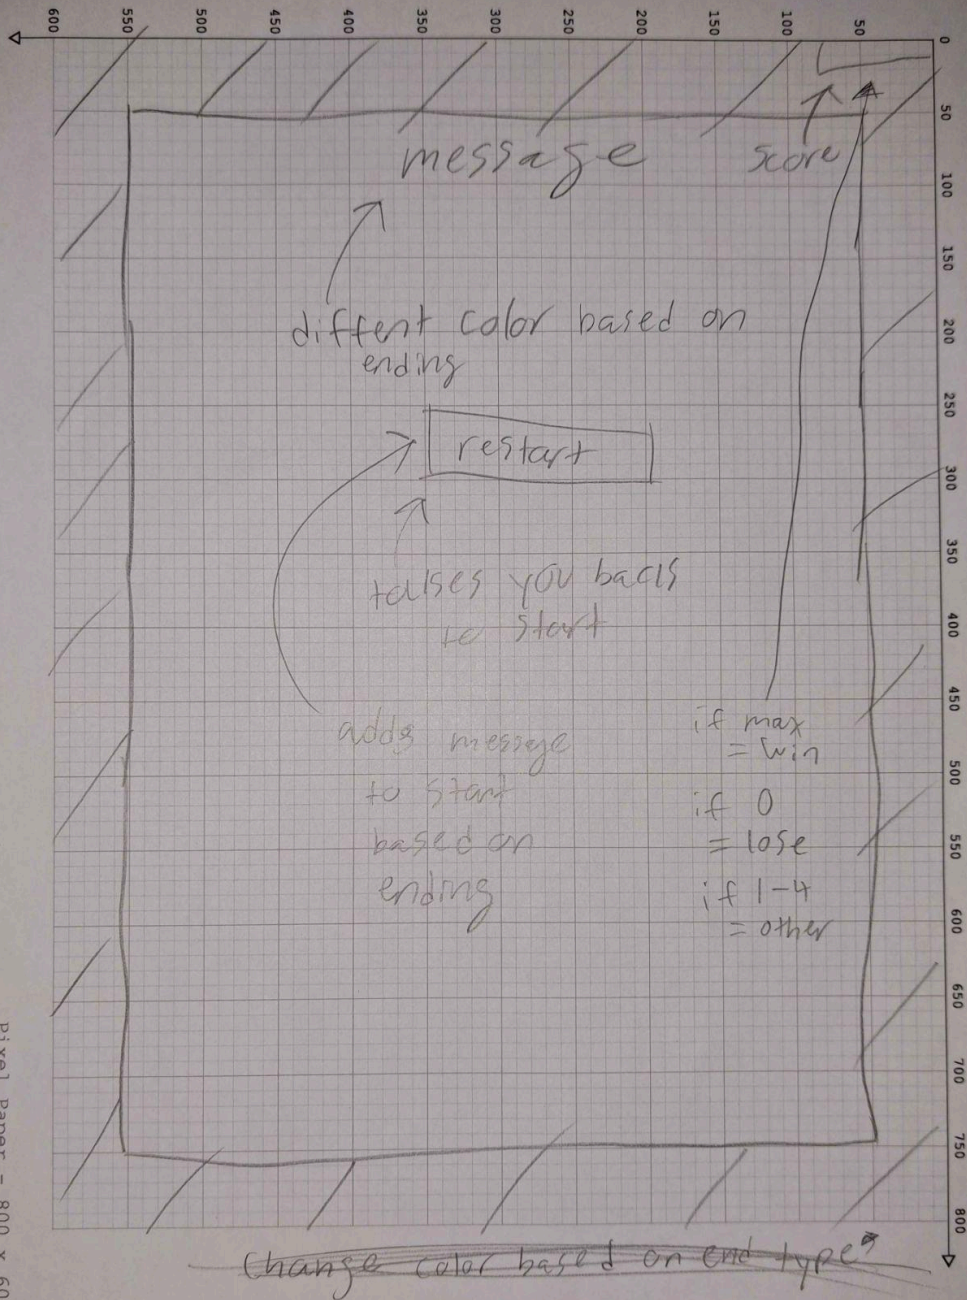 600 550 500 450 400 350 300 250 200 150 100 50 0
50
100
150
200
250
300
350
400
450
500
550
600
650
700
750
800
message
score
diffent color based on
ending
restart
takses you back
to start
adds message
to start
based on
ending
if max
= win
if 0
= lose
if 1-4
= other
Change color based on end type
Pixel Paper - 800 x 60